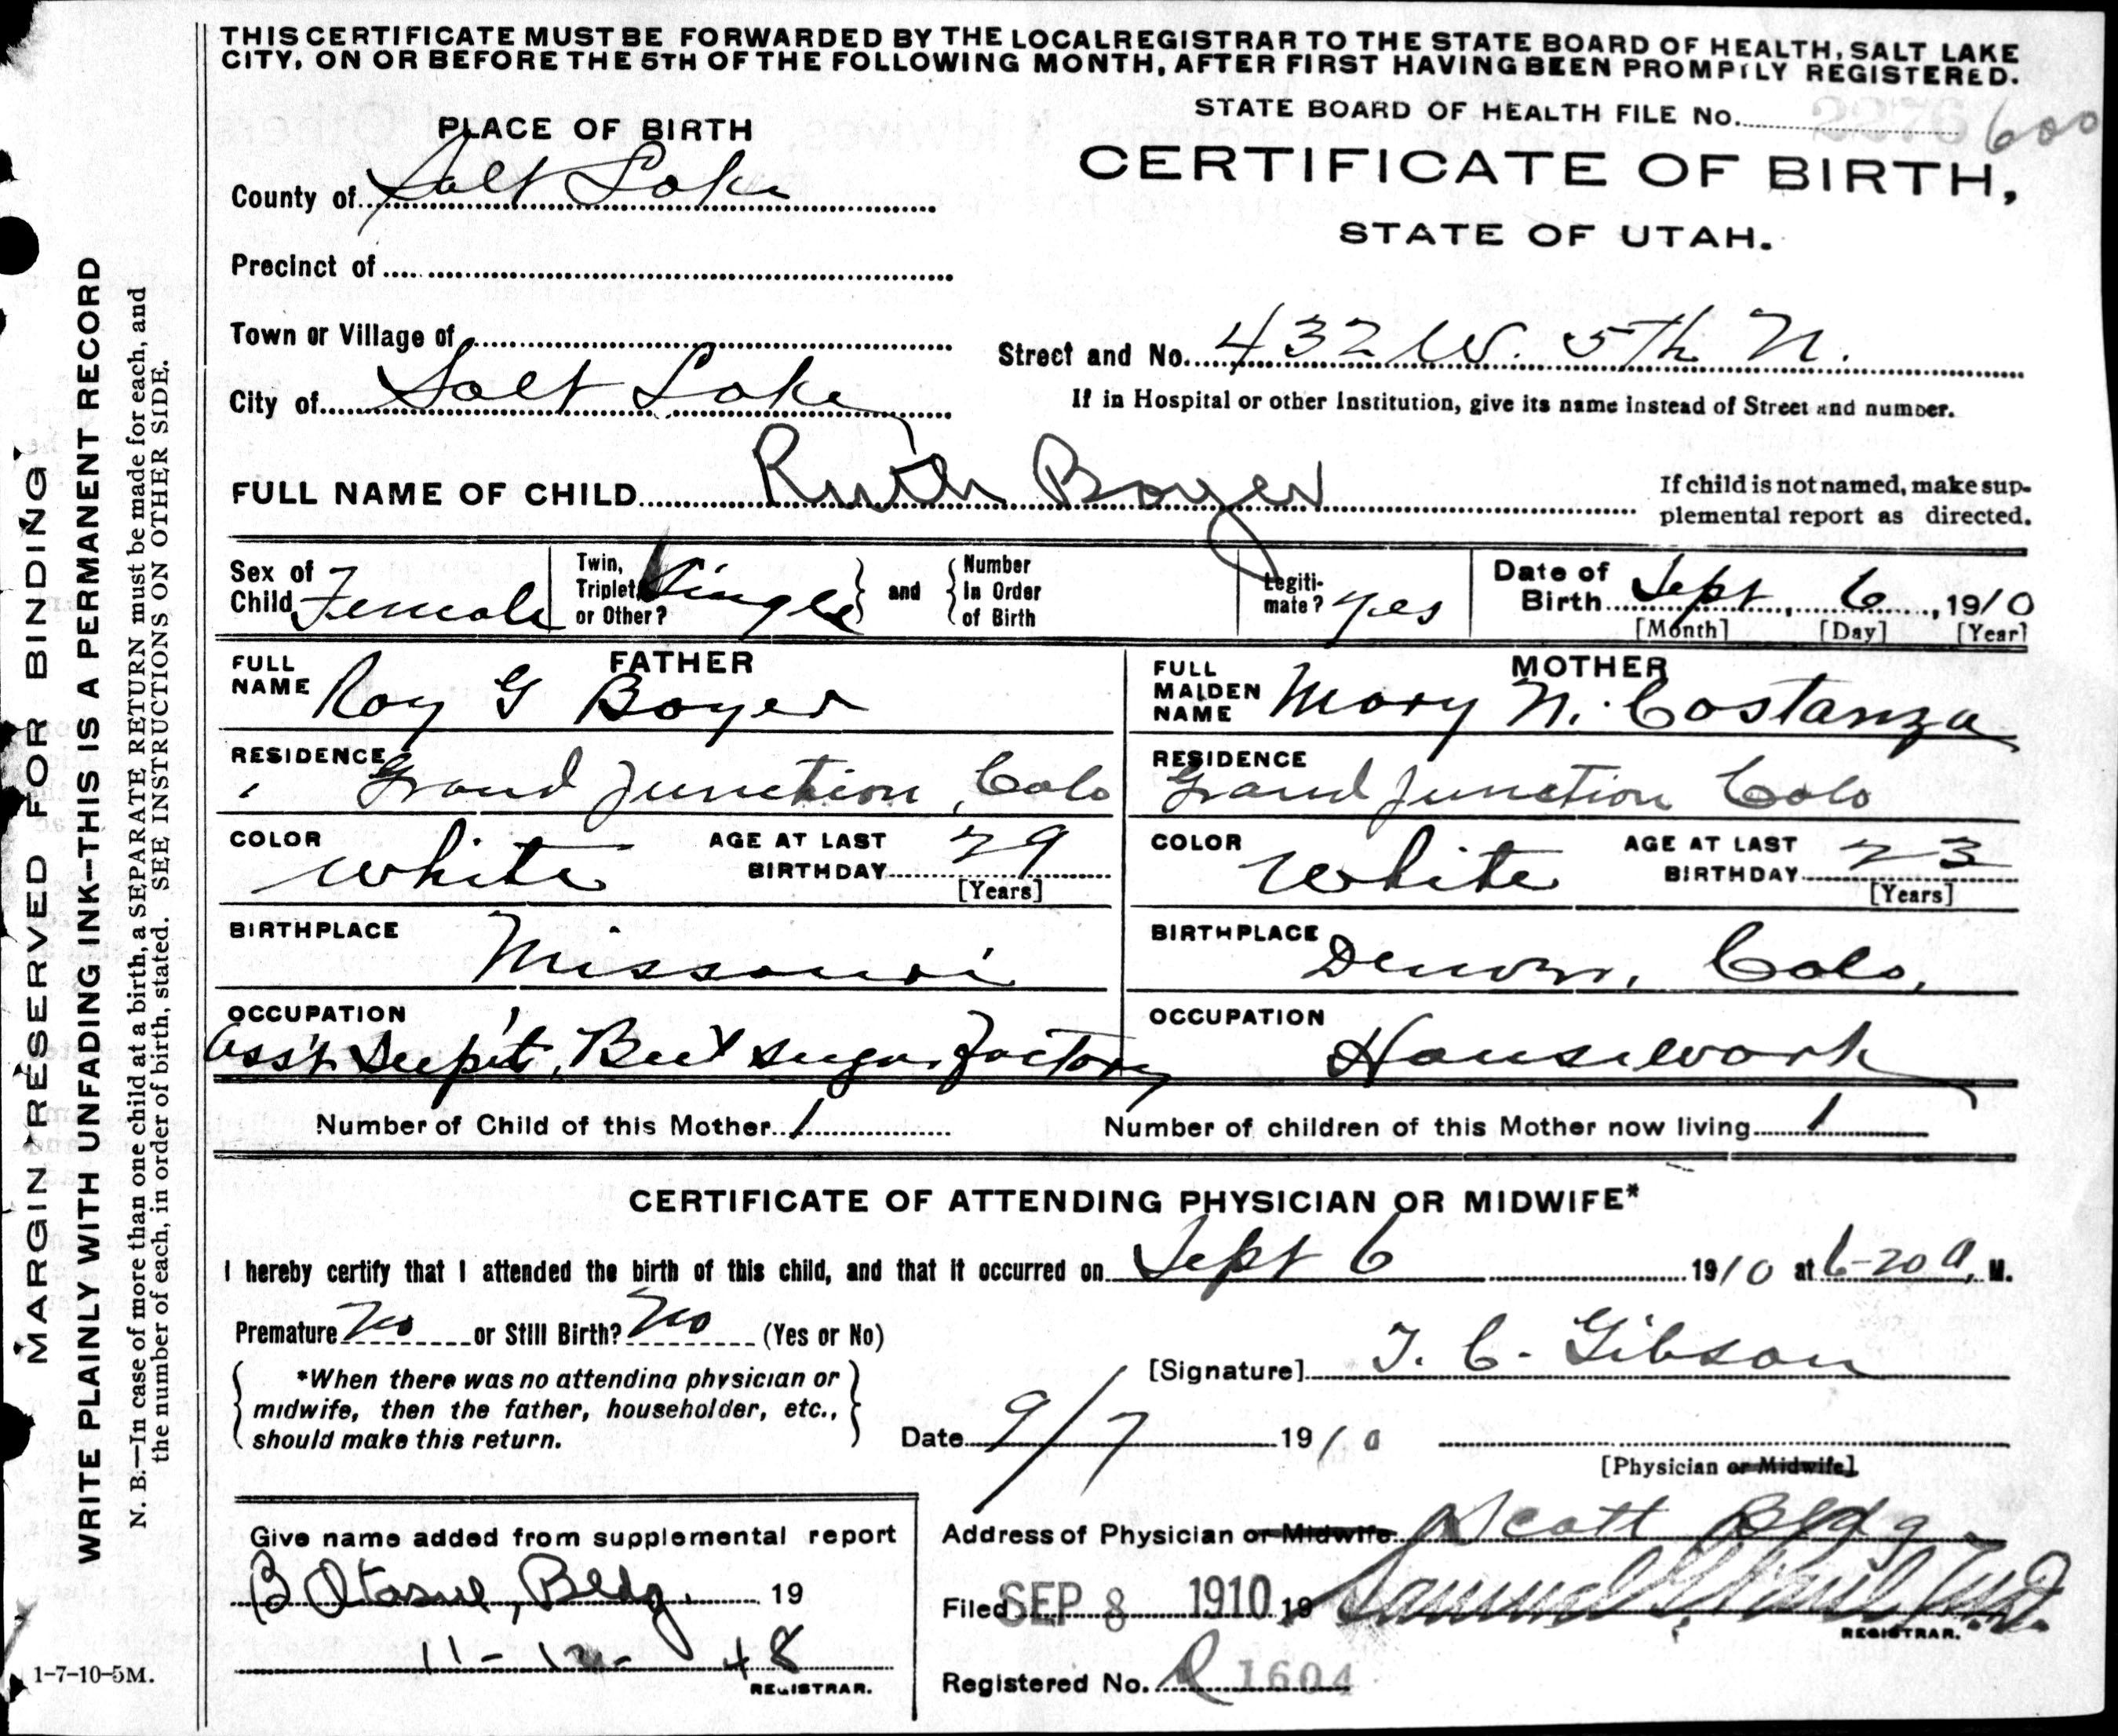 THIS CERTIFICATE MUST BE FORWARDED BY THE LOCAL REGISTRAR TO THE STATE BOARD OF HEALTH, SALT LAKE
CITY, ON OR BEFORE THE 5TH OF THE FOLLOWING MONTH, AFTER FIRST HAVING BEEN PROMPTLY REGISTERED.
STATE BOARD OF HEALTH FILE No. 2276 600
PLACE OF BIRTH
CERTIFICATE OF BIRTH,
STATE OF UTAH.
County of Salt Lake
Precinct of
Town or Village of
Street and No. 432 W. 5th N.
City of Salt Lake
If in Hospital or other Institution, give its name instead of Street and number.
FULL NAME OF CHILD Ruth Boyer
If child is not named, make sup-
plemental report as directed.
Sex of Child Female
Twin, Triplet, or Other? Single
and
Number In Order of Birth
Legiti-
mate? yes
Date of Birth Sept 6, 1910
[Month] [Day] [Year]
FATHER
FULL NAME Roy G Boyer
RESIDENCE Grand Junction, Colo
COLOR White
AGE AT LAST BIRTHDAY 29
[Years]
BIRTHPLACE Missouri
OCCUPATION Ass't Sup't, Beet sugar factory
MOTHER
FULL MAIDEN NAME Mary N. Costanza
RESIDENCE Grand Junction Colo
COLOR White
AGE AT LAST BIRTHDAY 23
[Years]
BIRTHPLACE Denver, Colo,
OCCUPATION Housework
Number of Child of this Mother 1
Number of children of this Mother now living 1
CERTIFICATE OF ATTENDING PHYSICIAN OR MIDWIFE*
I hereby certify that I attended the birth of this child, and that it occurred on Sept 6 1910 at 6-20 a, M.
Premature No or Still Birth? No (Yes or No)
*When there was no attending physician or
midwife, then the father, householder, etc.,
should make this return.
[Signature] T. C. Gibson
Date 9/7 1910
[Physician or Midwife]
Address of Physician or Midwife Scott Bldg
Give name added from supplemental report
Bldg. 19
11-12-48
REGISTRAR.
Filed SEP 8 1910 19 Samuel G. Paul M.D.
REGISTRAR.
Registered No. 1604
1-7-10-5M.
MARGIN RESERVED FOR BINDING
WRITE PLAINLY WITH UNFADING INK--THIS IS A PERMANENT RECORD
N. B.—In case of more than one child at a birth, a SEPARATE RETURN must be made for each, and
the number of each, in order of birth, stated. SEE INSTRUCTIONS ON OTHER SIDE.